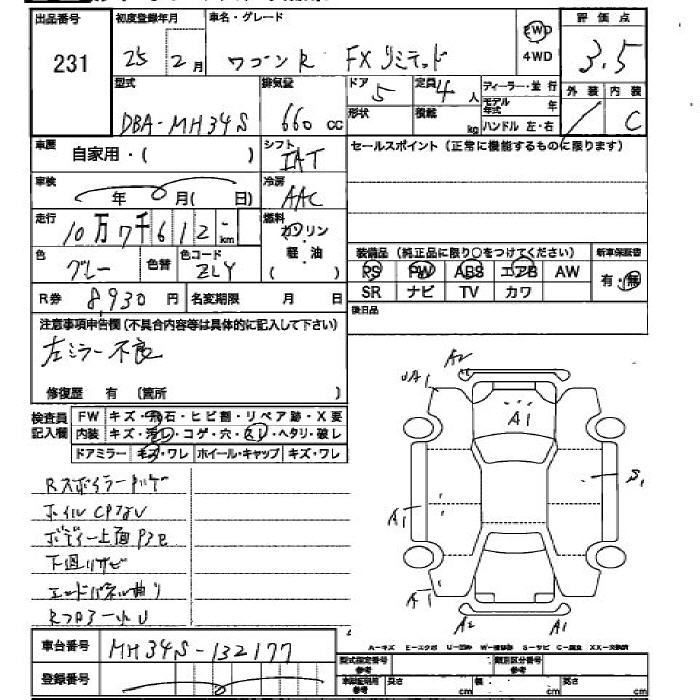 出品番号 初度登録年月 車名・グレード 評価点
231 25年 2月 ワゴンR FXリミテッド 2WD 4WD 3.5
型式 排気量 ドア 定員 ディーラー・並行 外装 内装
DBA-MH34S 660cc 5 4人 モデル年式 年 C
形状 積載 kg ハンドル 左・右
車歴 自家用・( ) シフト IAT セールスポイント(正常に機能するものに限ります)
車検 年 月( 日) 冷房 AAC
走行 10万7千612 km 燃料 ガソリン・軽油( )
色 グレー 色替 色コード ZLY 装備品(純正品に限り○をつけてください) 新車保証書
PS PW ABS エアB AW 有・無
R券 8,930円 名変期限 月 日 SR ナビ TV カワ
注意事項申告欄(不具合内容等は具体的に記入して下さい) 後日品
左ミラー不良
修復歴 有 〔箇所 〕
検査員記入欄 FW キズ・飛石・ヒビ割・リペア跡・X要
内装 キズ・汚レ・コゲ・穴・スレ・ヘタリ・破レ
ドアミラー キズ・ワレ ホイール・キャップ キズ・ワレ
A2
A1
A1
S1
A1
A1
A2 A2
下回リサビ
エンドパネル曲り
A-キズ E-エクボ S-サビ
車台番号 MH34S-132177 型式指定番号 参考 類別区分番号 参考
登録番号 車検証期用 参考 長さ cm 幅 cm 高さ cm